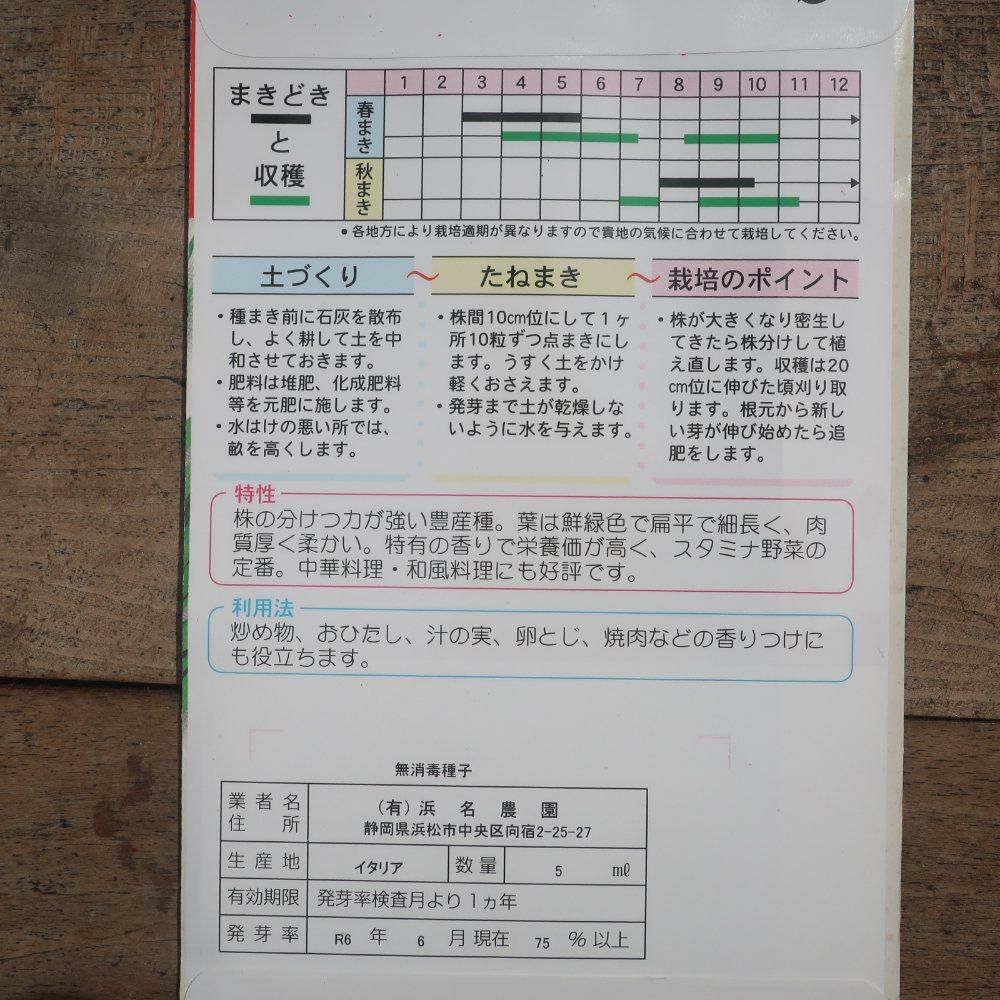 まきどき
と
収穫
1 2 3 4 5 6 7 8 9 10 11 12
春まき
秋まき
●各地方により栽培適期が異なりますので貴地の気候に合わせて栽培してください。
土づくり 〜 たねまき 〜 栽培のポイント
・種まき前に石灰を散布
し、よく耕して土を中
和させておきます。
・肥料は堆肥、化成肥料
等を元肥に施します。
・水はけの悪い所では、
畝を高くします。
・株間10㎝位にして１ヶ
所10粒ずつ点まきにし
ます。うすく土をかけ
軽くおさえます。
・発芽まで土が乾燥しな
いように水を与えます。
・株が大きくなり密生し
てきたら株分けして植
え直します。収穫は20
㎝位に伸びた頃刈り取
ります。根元から新し
い芽が伸び始めたら追
肥をします。
特性
株の分けつ力が強い豊産種。葉は鮮緑色で扁平で細長く、肉
質厚く柔かい。特有の香りで栄養価が高く、スタミナ野菜の
定番。中華料理・和風料理にも好評です。
利用法
炒め物、おひたし、汁の実、卵とじ、焼肉などの香りつけに
も役立ちます。
無消毒種子
業者名
住所
(有)浜名農園
静岡県浜松市中央区向宿2-25-27
生産地 イタリア 数量 5 ㎖
有効期限 発芽率検査月より１ヵ年
発芽率 R6 年 6 月現在 75 %以上